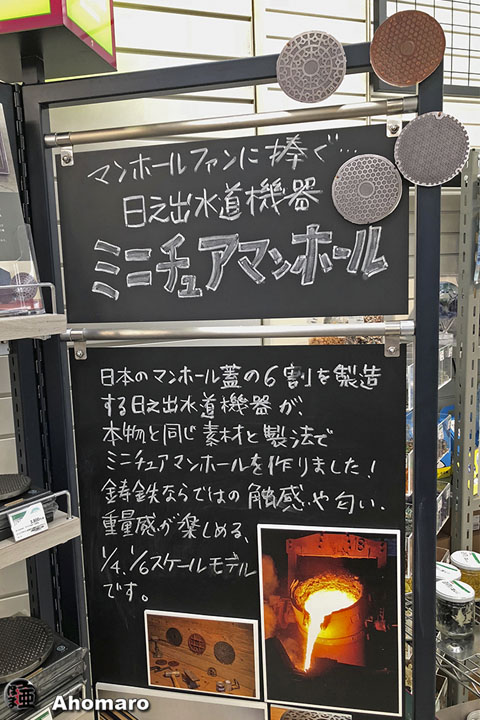 マンホールファンに捧ぐ…
日之出水道機器
ミニチュアマンホール
日本のマンホール蓋の6割を製造
する日之出水道機器が、
本物と同じ素材と製法で
ミニチュアマンホールを作りました！
鋳鉄ならではの触感や匂い、
重量感が楽しめる、
1/4、1/6スケールモデル
です。
Ahomaro